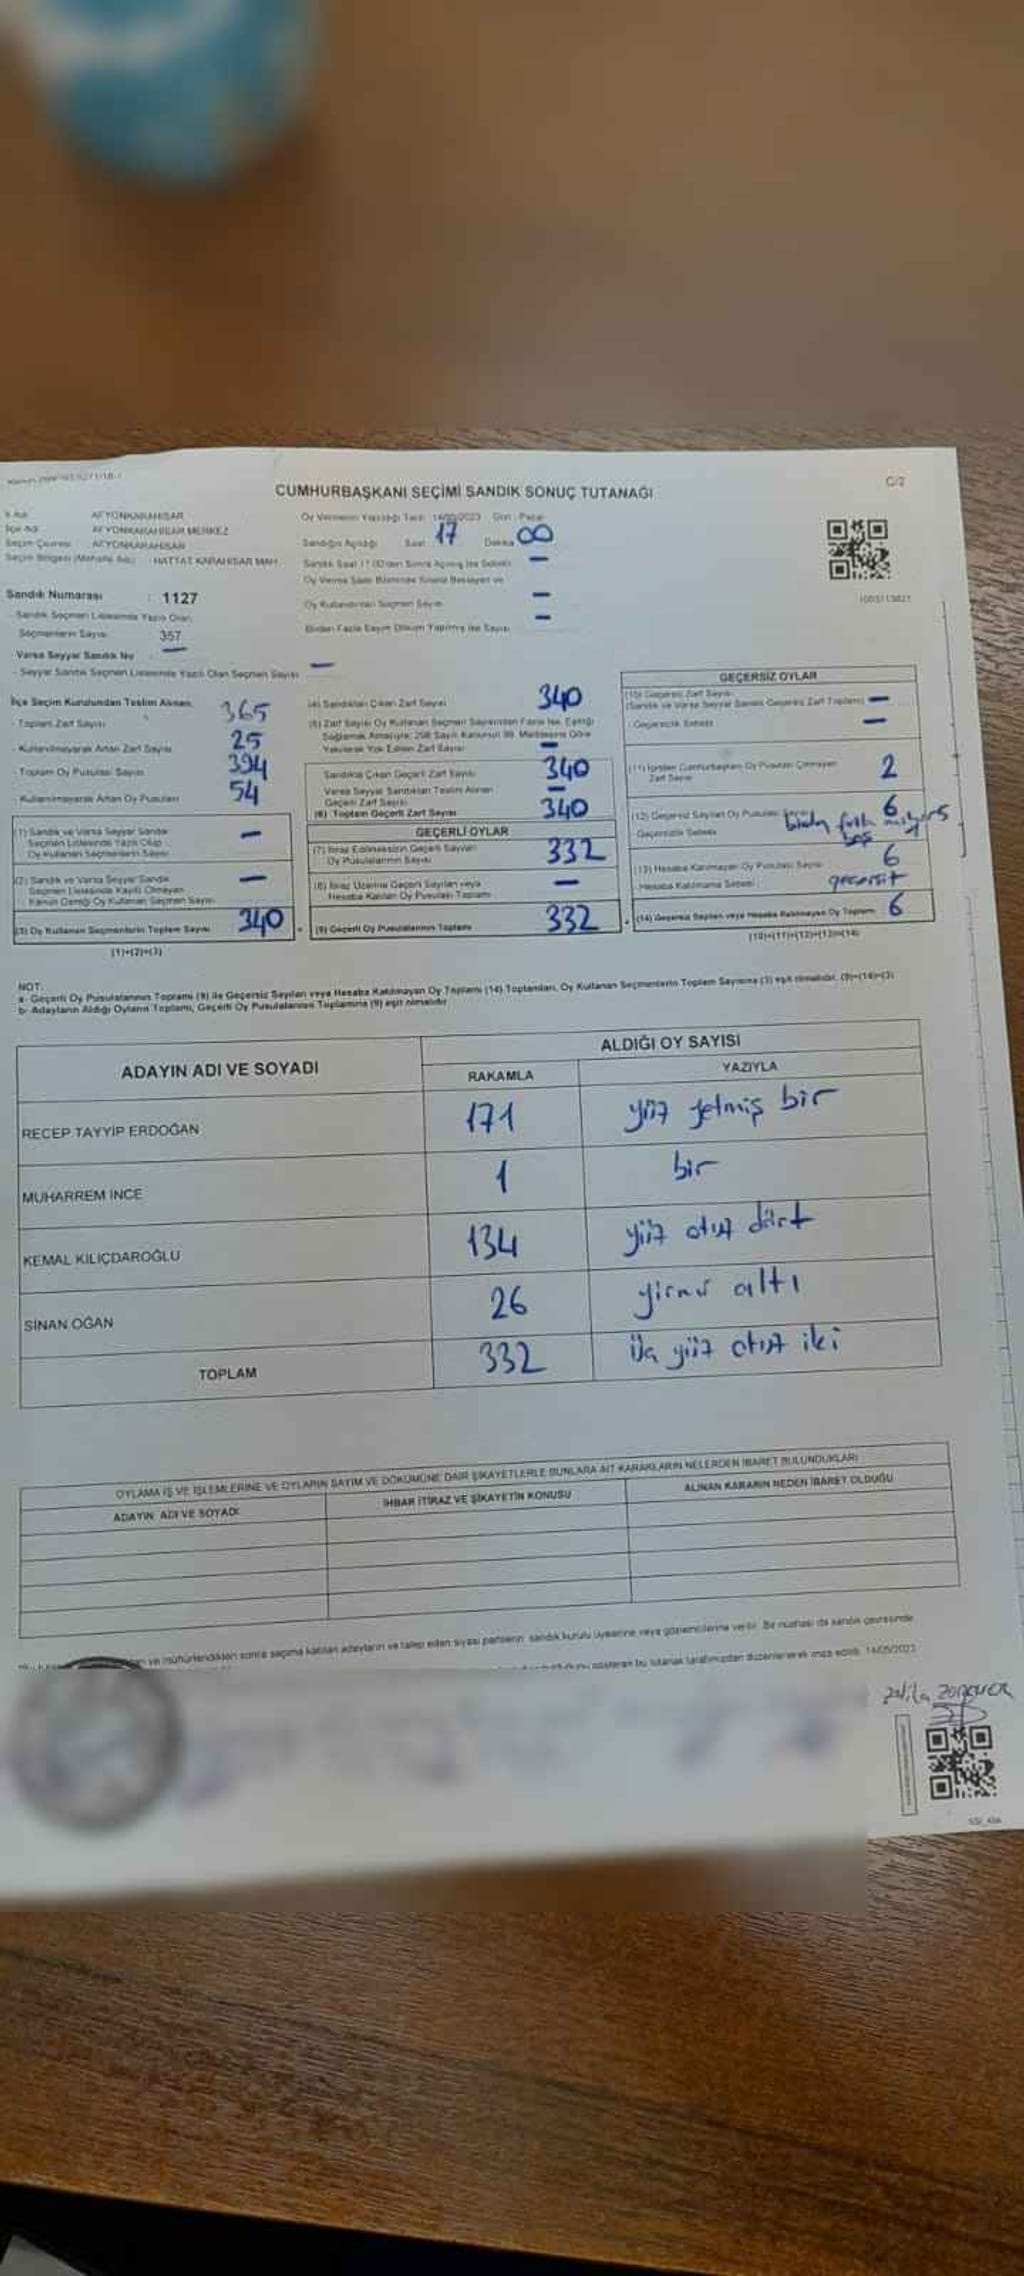 C/2
CUMHURBAŞKANI SEÇİMİ SANDIK SONUÇ TUTANAĞI
İl Adı AFYONKARAHİSAR
İlçe Adı AFYONKARAHİSAR MERKEZ
Seçim Çevresi AFYONKARAHİSAR
Seçim Bölgesi (Mahalle Adı) : HATTAT KARAHİSAR MAH.
Oy Vermenin Yapıldığı Tarih : 14/05/2023 Gün : Pazar
Sandığın Açıldığı Saat 17 Dakika 00
Sandık Saat 17:00'den Sonra Açılmış İse Sebebi : -
Oy Kullandırılan Seçmen Sayısı -
Birden Fazla Sayım Döküm Yapılmış İse Sayısı -
Sandık Numarası : 1127
- Sandık Seçmen Listesinde Yazılı Olan
Seçmenlerin Sayısı 357
Varsa Seyyar Sandık No : -
- Seyyar Sandık Seçmen Listesinde Yazılı Olan Seçmen Sayısı -
İlçe Seçim Kurulundan Teslim Alınan
- Toplam Zarf Sayısı 365
- Kullanılmayarak Artan Zarf Sayısı 25
- Toplam Oy Pusulası Sayısı 394
- Kullanılmayarak Artan Oy Pusulası 54
(1) Sandık ve Varsa Seyyar Sandık
Seçmen Listesinde Yazılı Olup
Oy Kullanan Seçmenlerin Sayısı -
(2) Sandık ve Varsa Seyyar Sandık
Seçmen Listesinde Kayıtlı Olmayan
Kanun Gereği Oy Kullanan Seçmen Sayısı -
(3) Oy Kullanan Seçmenlerin Toplam Sayısı 340
(1)+(2)=(3)
(4) Sandıktan Çıkan Zarf Sayısı 340
(5) Zarf Sayısı Oy Kullanan Seçmen Sayısından Fazla İse, Eşitliği
Sağlamak Amacıyla; 298 Sayılı Kanunun 98. Maddesine Göre
Yakılarak Yok Edilen Zarf Sayısı -
Sandıkta Çıkan Geçerli Zarf Sayısı 340
Varsa Seyyar Sandıktan Teslim Alınan
Geçerli Zarf Sayısı -
(6) Toplam Geçerli Zarf Sayısı 340
GEÇERLİ OYLAR
(7) İtiraz Edilmeksizin Geçerli Sayılan
Oy Pusulalarının Sayısı 332
(8) İtiraz Üzerine Geçerli Sayılan veya
Hesaba Katılan Oy Pusulası Toplamı -
(9) Geçerli Oy Pusulalarının Toplamı 332
GEÇERSİZ OYLAR
(10) Geçersiz Zarf Sayısı
(Sandık ve Varsa Seyyar Sandık Geçersiz Zarf Toplamı) -
- Geçersizlik Sebebi -
(11) İçinden Cumhurbaşkanı Oy Pusulası Çıkmayan
Zarf Sayısı 2
(12) Geçersiz Sayılan Oy Pusulası Sayısı 6
Geçersizlik Sebebi
boş
(13) Hesaba Katılmayan Oy Pusulası Sayısı 6
Hesaba Katılmama Sebebi geçersiz
(14) Geçersiz Sayılan veya Hesaba Katılmayan Oy Toplamı 6
(10)+(11)+(12)+(13)=(14)
NOT:
a- Geçerli Oy Pusulalarının Toplamı (9) ile Geçersiz Sayılan veya Hesaba Katılmayan Oy Toplamı (14) Toplamları, Oy Kullanan Seçmenlerin Toplam Sayısına (3) eşit olmalıdır. (9)+(14)=(3)
b- Adayların Aldığı Oyların Toplamı, Geçerli Oy Pusulalarının Toplamına (9) eşit olmalıdır.
ADAYIN ADI VE SOYADI
ALDIĞI OY SAYISI
RAKAMLA YAZIYLA
RECEP TAYYİP ERDOĞAN 171 yüz yetmiş bir
MUHARREM İNCE 1 bir
KEMAL KILIÇDAROĞLU 134 yüz otuz dört
SİNAN OĞAN 26 yirmi altı
TOPLAM 332 üç yüz otuz iki
OYLAMA İŞ VE İŞLEMLERİNE VE OYLARIN SAYIM VE DÖKÜMÜNE DAİR ŞİKAYETLERLE BUNLARA AİT KARARLARIN NELERDEN İBARET BULUNDUKLARI
ADAYIN ADI VE SOYADI İHBAR İTİRAZ VE ŞİKAYETİN KONUSU ALINAN KARARIN NEDEN İBARET OLDUĞU
ve mühürlendikten sonra seçime katılan adayların ve talep eden siyasi partilerin sandık kurulu üyelerine veya gözlemcilerine verilir. Bir nüshası da sandık çevresinde
gösteren bu tutanak tarafımızdan düzenlenerek imza edildi. 14/05/2023